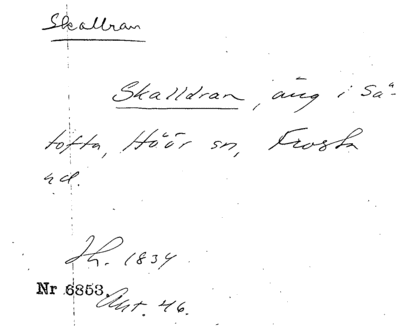 Skallran
Skalldran, äng i Sä-
tofta, Höör sn, Frosta
hd.
Jh. 1834
Nr 6853.
Akt. 46.